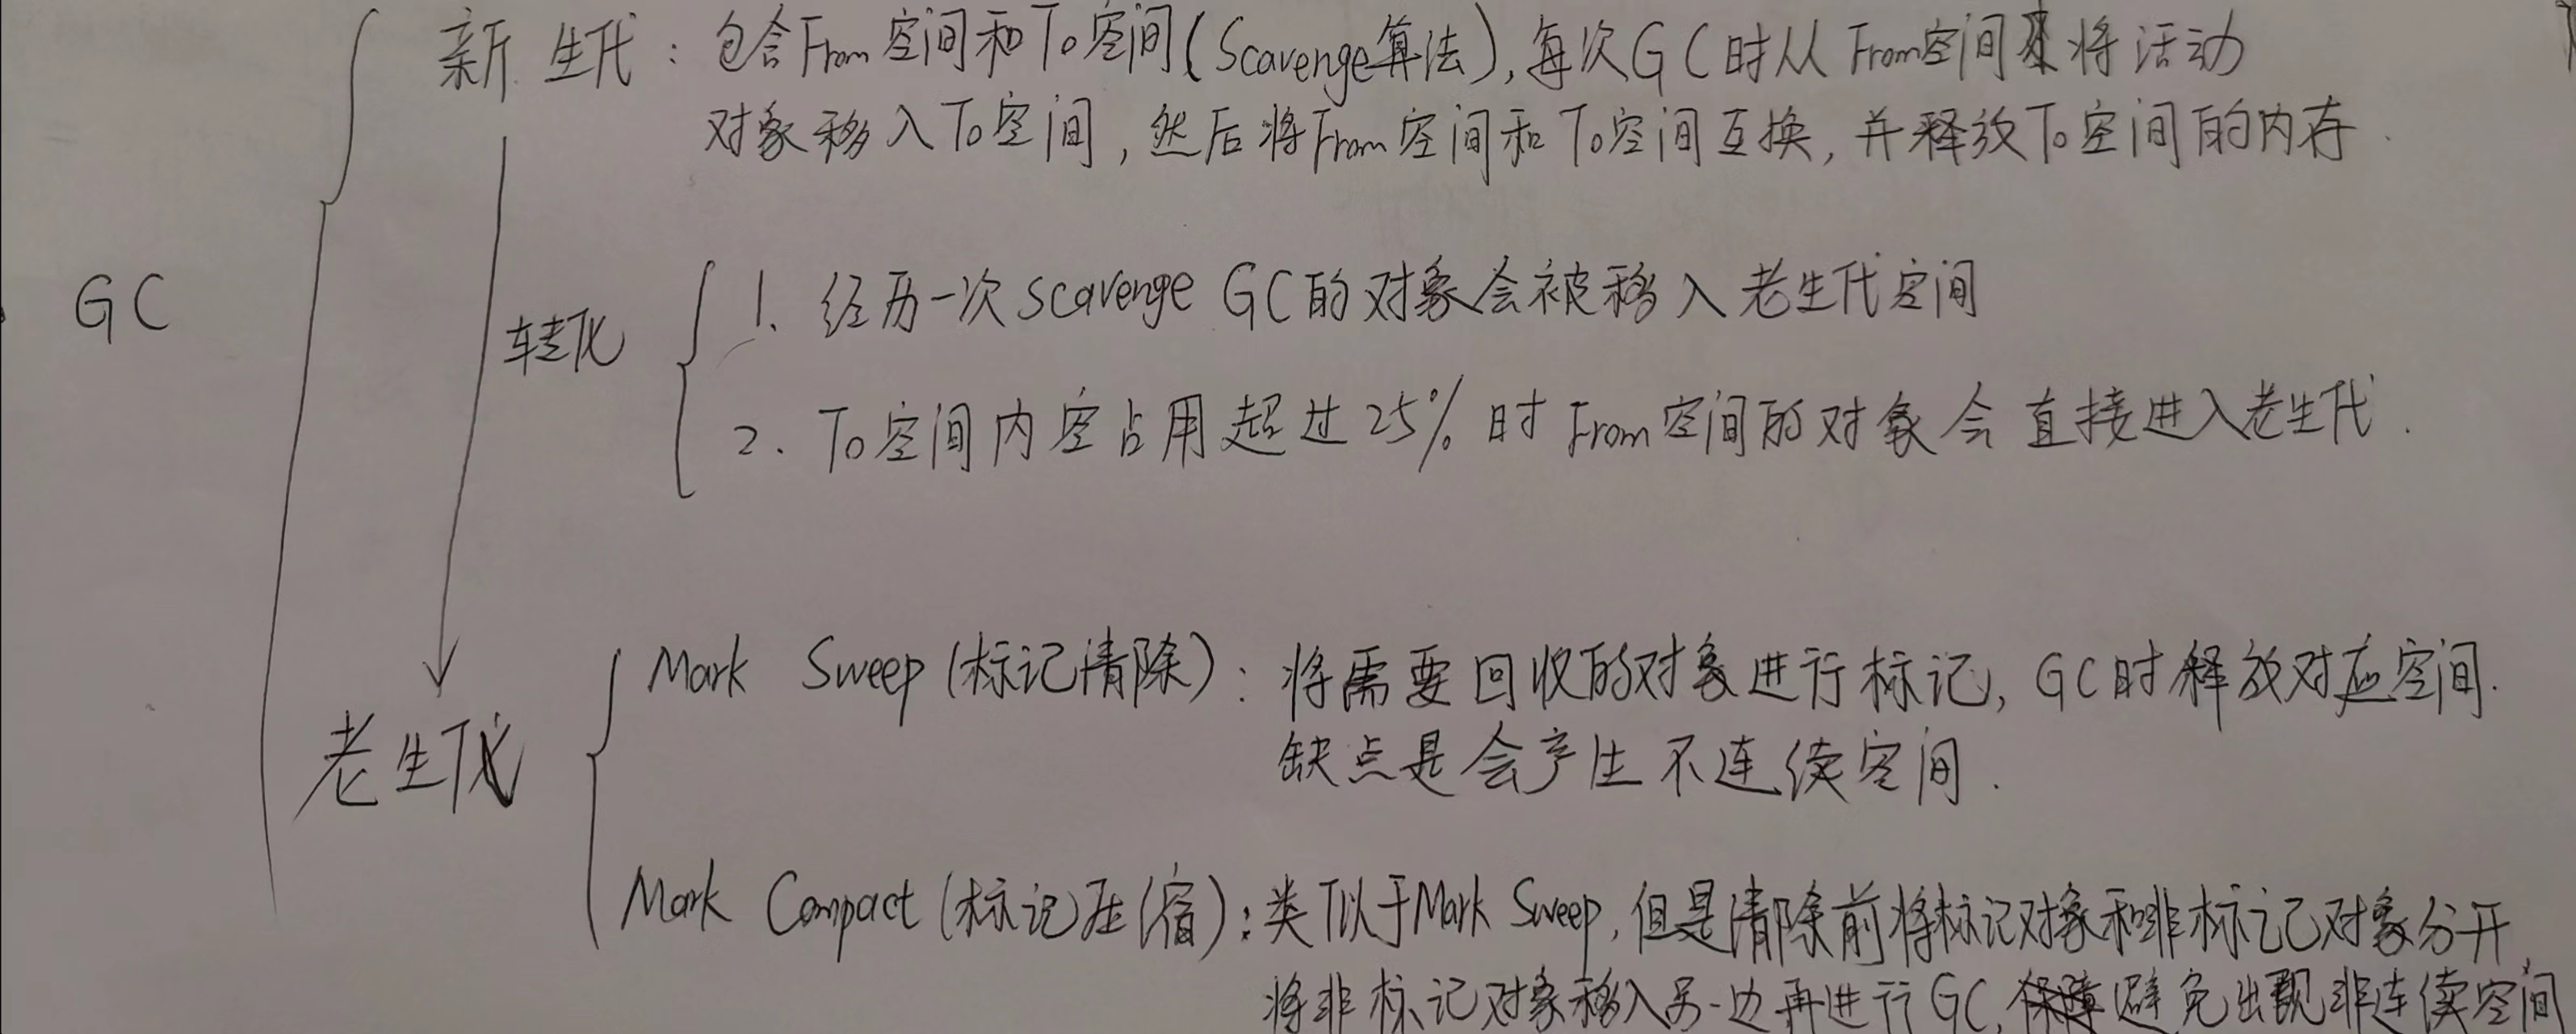 新生代：包含From空间和To空间(Scavenge算法),每次GC时从From空间将活动
对象移入To空间,然后将From空间和To空间互换,并释放To空间的内存.
GC
转化
1. 经历一次scavenge GC的对象会被移入老生代空间
2. To空间内空占用超过25%时From空间的对象会直接进入老生代.
老生代
Mark Sweep(标记清除)：将需要回收的对象进行标记,GC时释放对应空间.
缺点是会产生不连续空间.
Mark Compact(标记压缩)：类似于Mark Sweep,但是清除前将标记对象和非标记对象分开,
将非标记对象移入另一边再进行GC,避免出现非连续空间